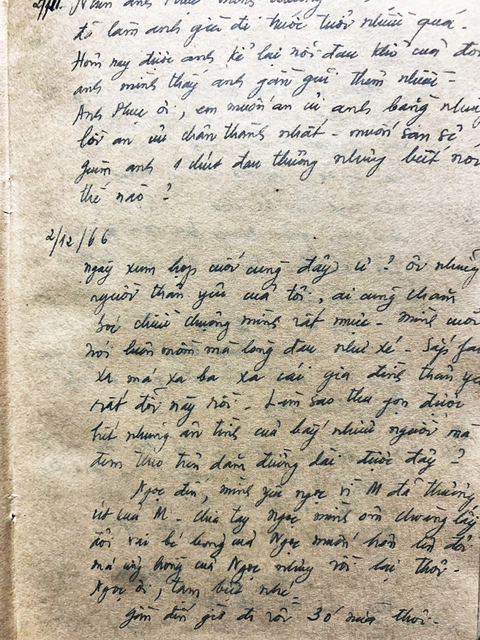 để làm anh già đi trước tuổi nhiều quá
Hôm nay được anh kể lại nỗi đau khổ của đời
anh mình thấy anh gần gũi thêm nhiều
Anh Phúc ơi, em muốn an ủi anh bằng những
lời an ủi chân thành nhất - muốn san sẻ
giùm anh 1 chút đau thương nhưng biết nói
thế nào ?
2/12/66
Ngày xum họp cuối cùng đây ư ? Ôi những
người thân yêu của tôi, ai cũng chăm
sóc chiều chuộng mình rất mực - Mình cười
nói luôn mồm mà lòng đau như xé - Sắp
xa má xa ba xa cái gia đình thân yêu
rất đỗi này rồi - Làm sao thu gọn được
hết những ân tình của bấy nhiêu người mà
đem theo trên dặm đường dài được đây ?
Ngọc đến, mình yêu Ngọc vì M đã thương
của M - chia tay Ngọc mình ôm choàng lấy
rồi vai bé bỏng của Ngọc muốn hôn lên đôi
má ửng hồng của Ngọc nhưng rồi lại thôi -
Ngọc ơi, tạm biệt nhé -
Gần đến giờ đi rồi 30 nữa thôi -